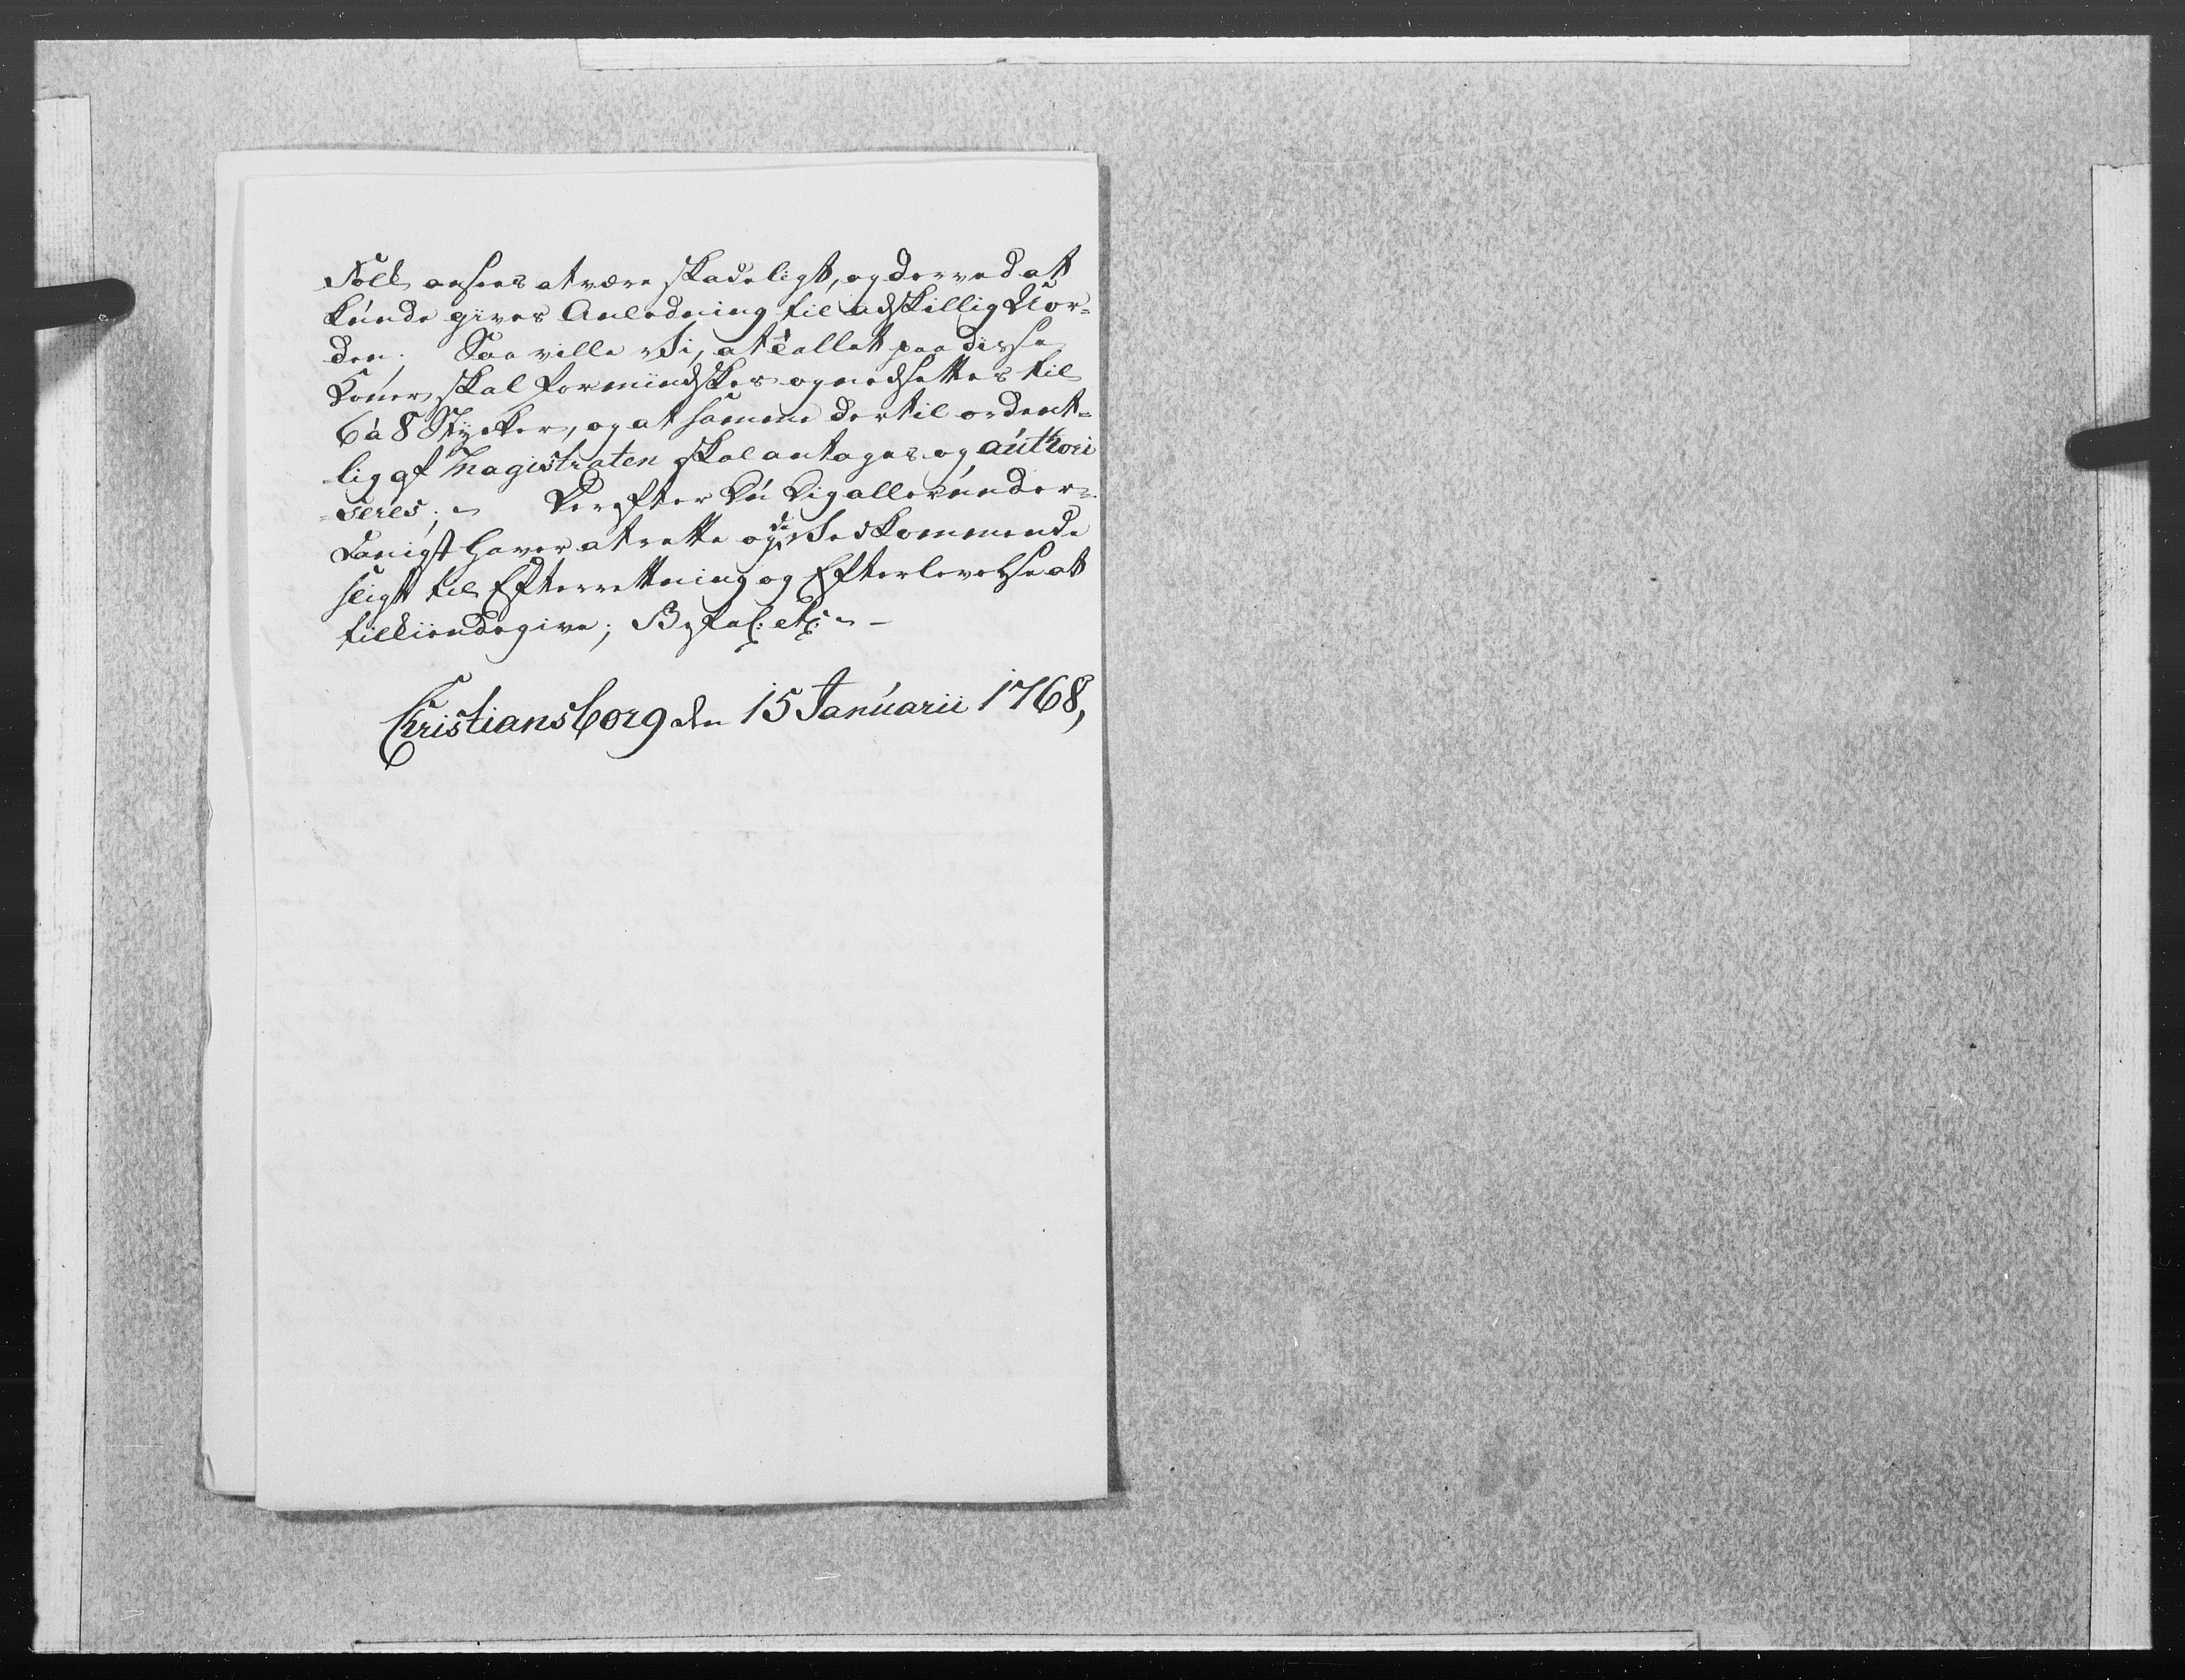 Folk ansees at være skadeligt, og derved at
kunde gives Anledning til adskillig Uor-
den; Saa ville Vi, at Tallet paa disse
Koner skal formindskes og nedsettes til
6 à 8 Stykker, og at samme dertil ordent-
lig af Magistraten skal antages og authori
-seres; Derefter Du Dig allerunder-
danigst haver at rette og de Vedkommende
sligt til Efterretning og Efterlevelse at
tilkiendegive; Befal: etc:
Christiansborg den 15 Januarii 1768,